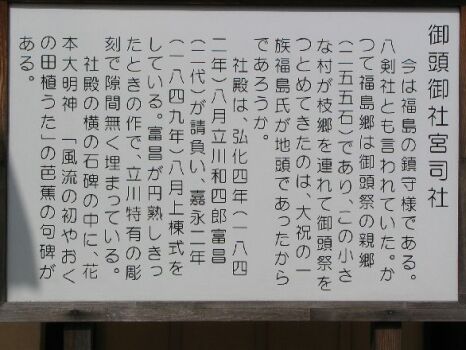 御頭御社宮司社
今は福島の鎮守様である。
八剣社とも言われていた。か
つて福島郷は御頭祭の親郷
(二五五石)であり、この小さ
な村が枝郷を連れて御頭祭を
つとめてきたのは、大祝の一
族福島氏が地頭であったから
であろうか。
社殿は、弘化四年(一八四
二年)八月立川和四郎富昌
(二代)が請負い、嘉永二年
(一八四九年)八月上棟式を
している。富昌が円熟しきっ
たときの作で、立川特有の彫
刻で隙間無く埋まっている。
社殿の横の石碑の中に、花
本大明神 「風流の初やおく
の田植うた」の芭蕉の句碑が
ある。